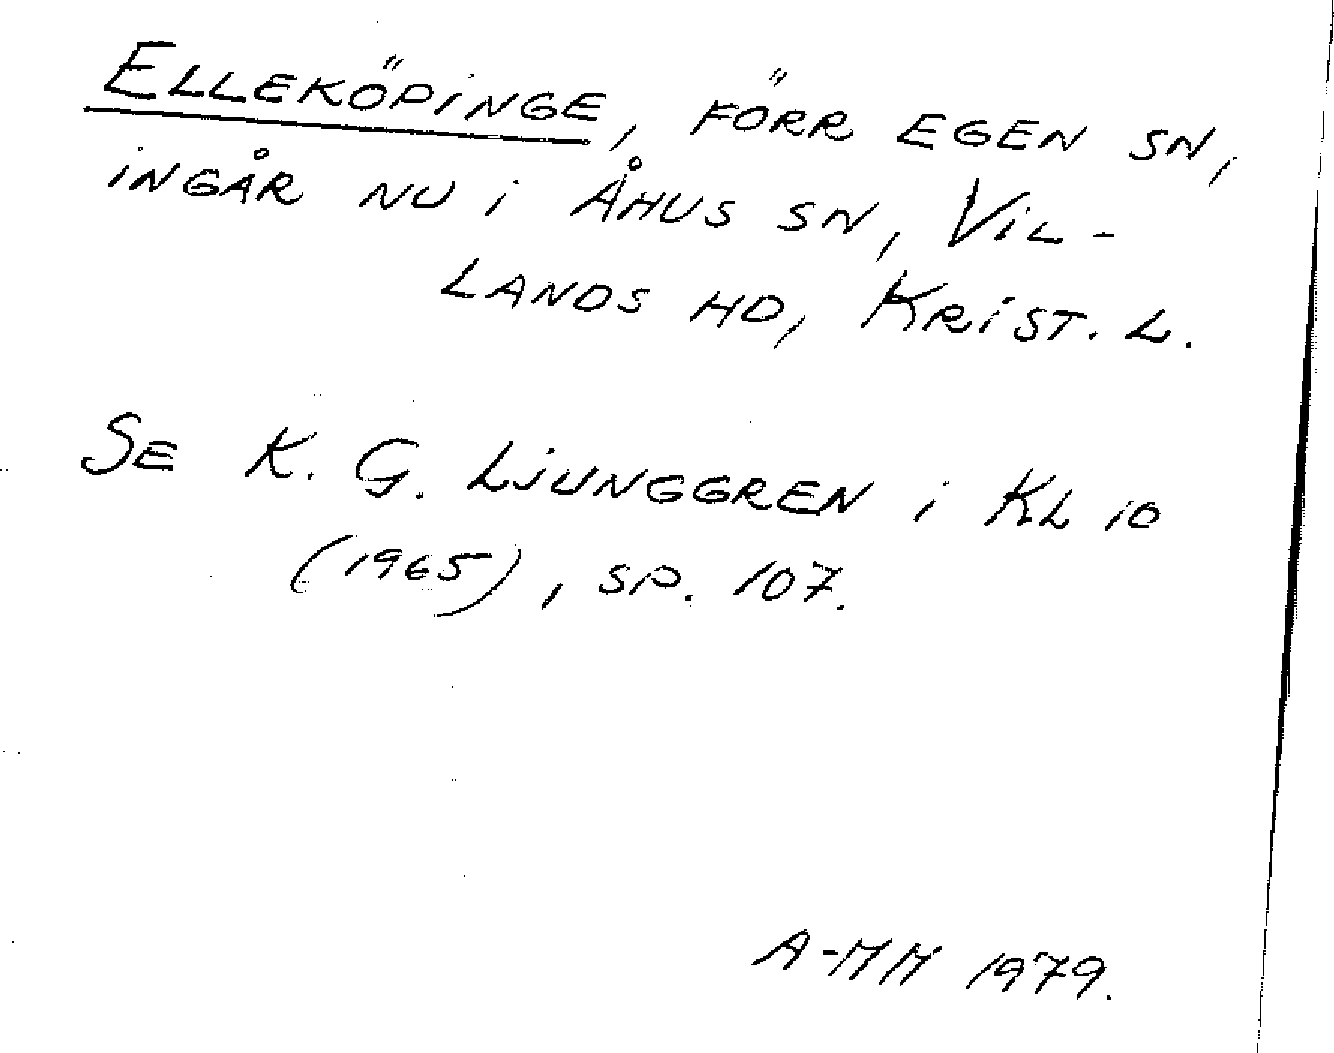 ELLEKÖPINGE, FÖRR EGEN SN,
INGÅR NU I ÅHUS SN, VIL-
LANDS HD, KRIST. L.
SE K. G. LJUNGGREN I KL 10
(1965), SP. 107.
A-MM 1979.